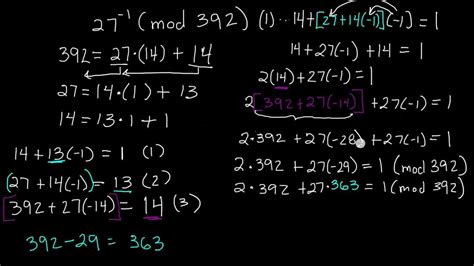 27⁻¹ (mod 392)
392 = 27·(14) + 14
27 = 14·(1) + 13
14 = 13·1 + 1
14 + 13(-1) = 1 (1)
(27 + 14(-1)) = 13 (2)
[392 + 27(-14)] = 14 (3)
392 - 29 = 363
(1)··· 14 + [27 + 14(-1)](-1) = 1
14 + 27(-1) + 14 = 1
2(14) + 27(-1) = 1
2[392 + 27(-14)] + 27(-1) = 1
2·392 + 27(-28) + 27(-1) = 1
2·392 + 27(-29) = 1 (mod 392)
2·392 + 27·363 = 1 (mod 392)